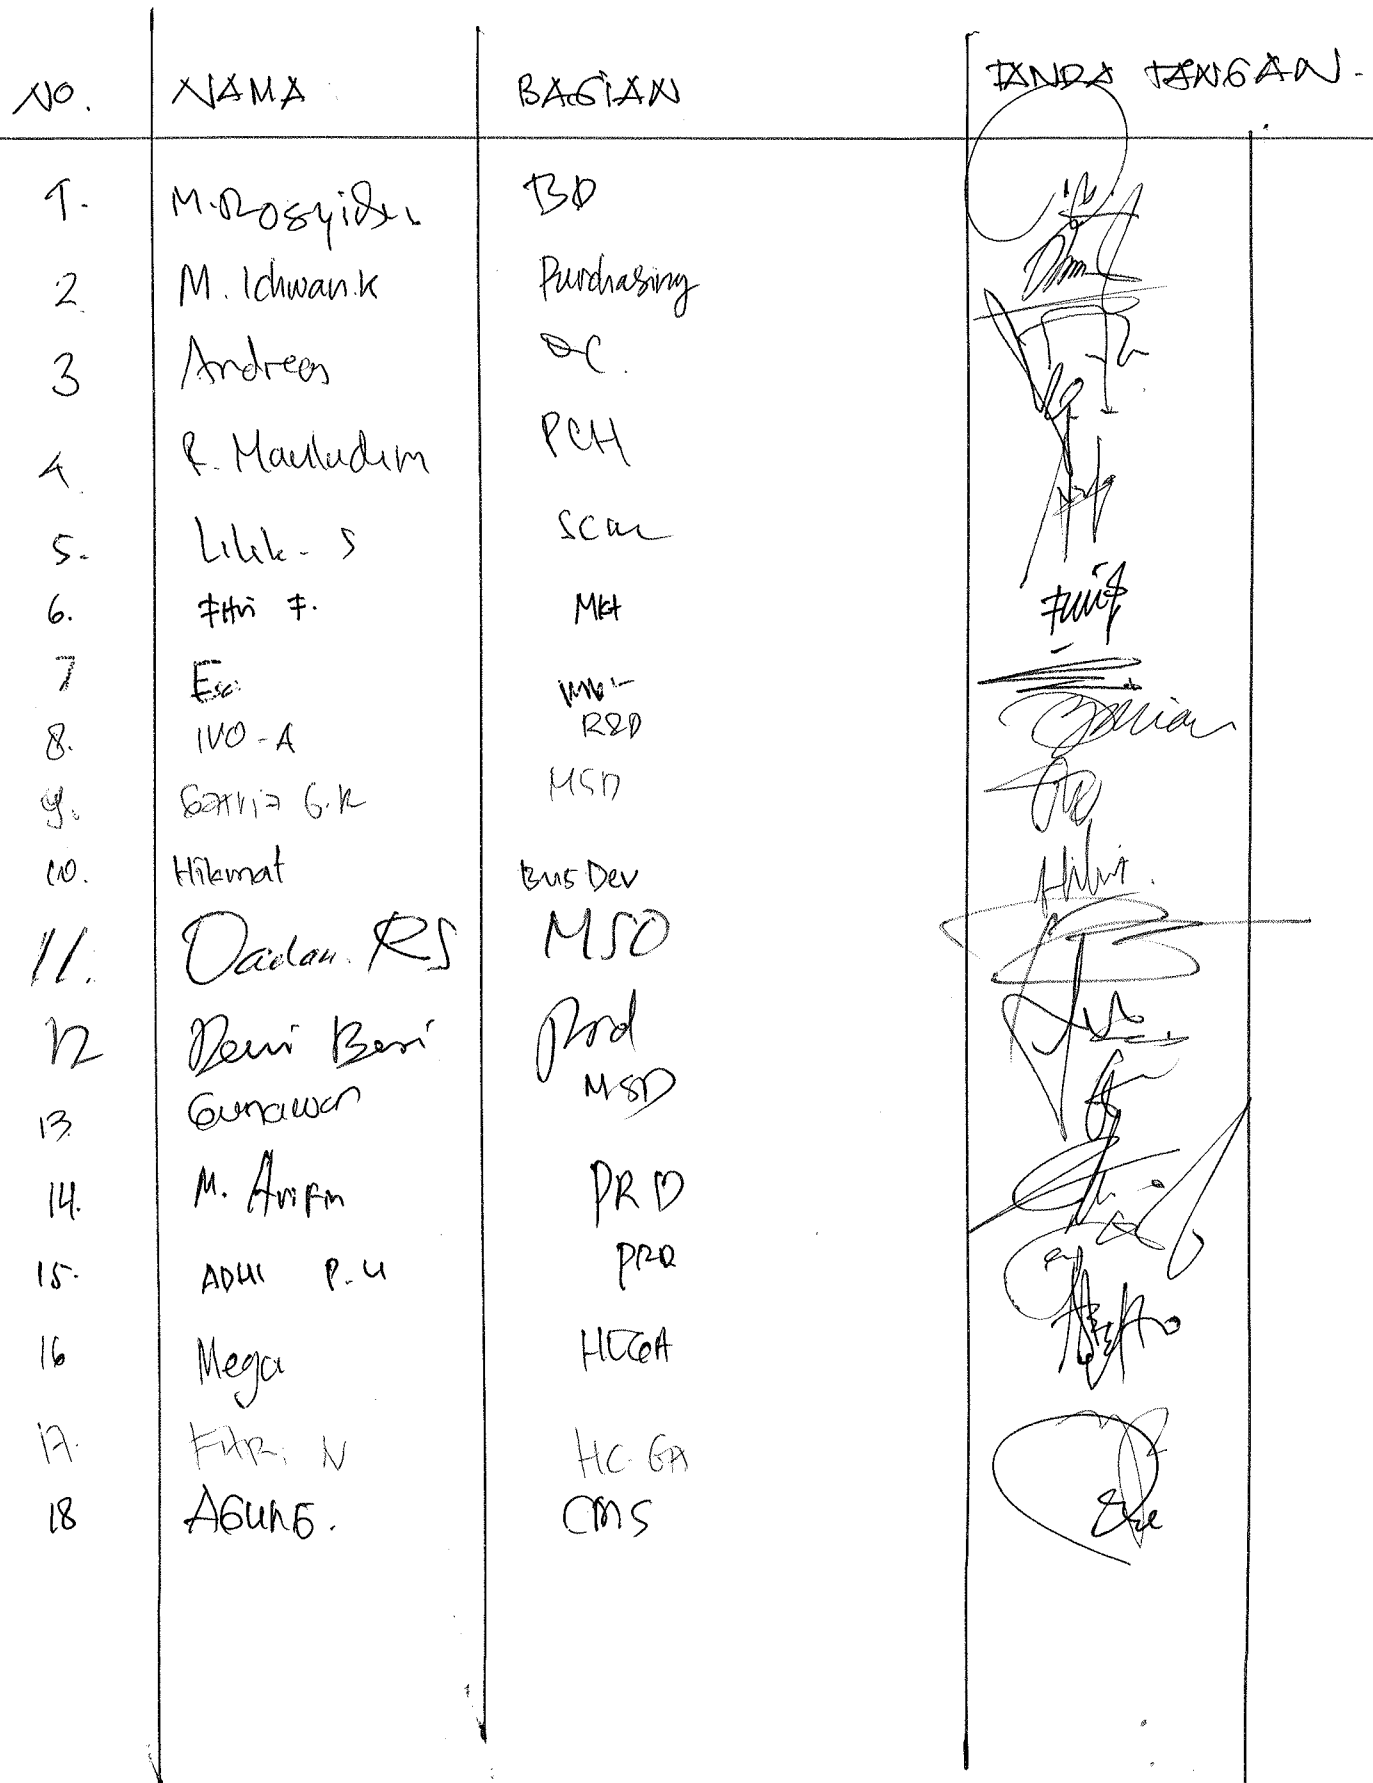 NO. NAMA BAGIAN TANDA TANGAN.
1. M. Rosyidi BD
2 M. Ichwan.K Purchasing
3 Andreas QC.
4. R. Mauludin PCH
5. Lilik - S SCM
6. Fitri F. Mkt
7
8. IVO - A R&D
9. G.R MSD
10. Hikmat Bus Dev
11. Dadan. RS MSD
12 Prod
13. Gunawan MSD
14. M. Arifin PRD
15. ADHI P.U PRD
16 Mega HCGA
17. FITRI N HC. GA
18 AGUNG. CMS